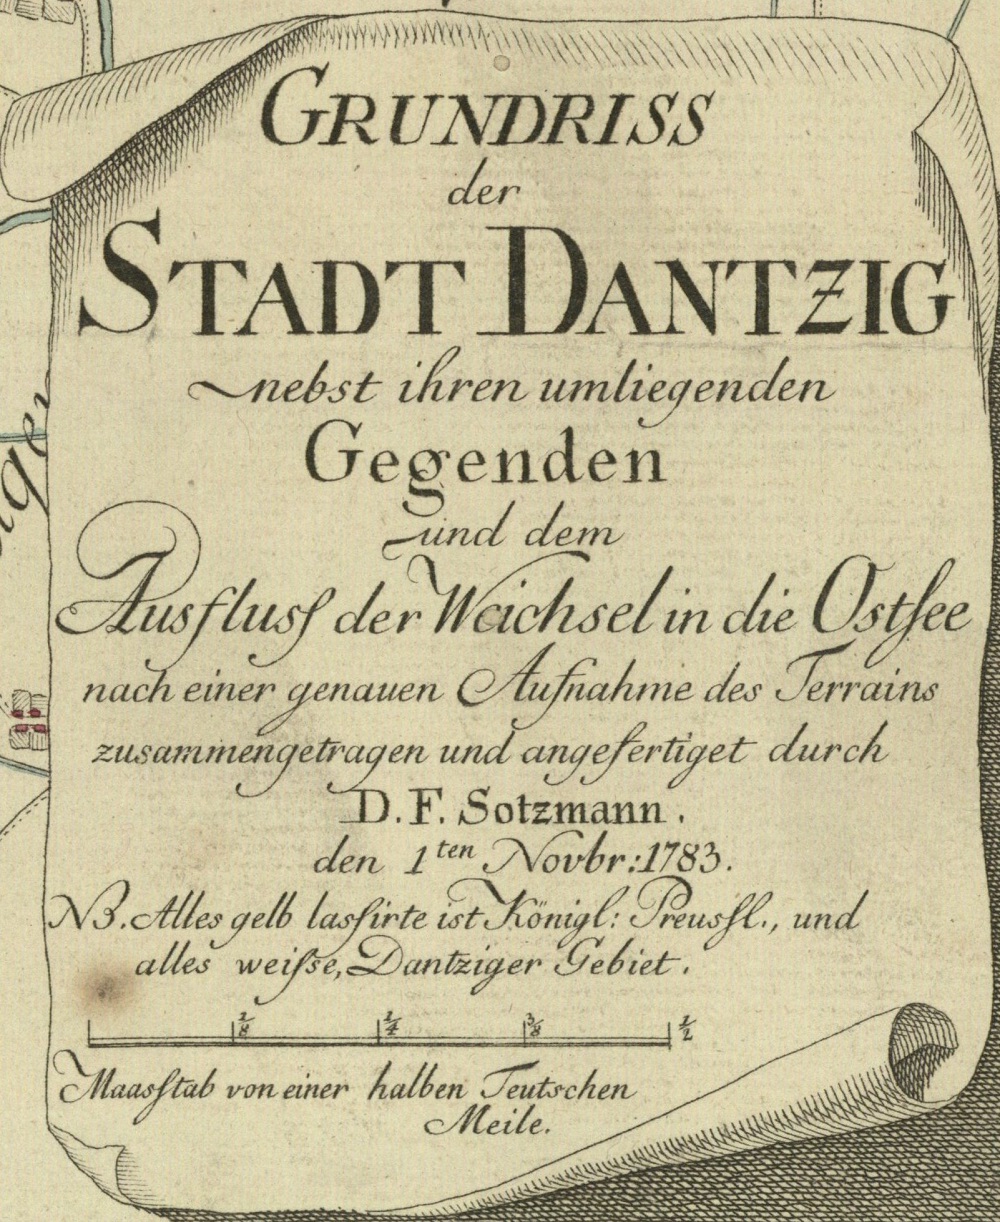 GRUNDRISS
der
STADT DANTZIG
nebst ihren umliegenden
Gegenden
und dem
Ausflusſ der Weichsel in die Ostſee
nach einer genauen Aufnahme des Terrains
zusammengetragen und angefertiget durch
D. F. Sotzmann.
den 1ten Novbr: 1783.
NB. Alles gelb lasſirte ist Königl: Preusſl., und
alles weiſse, Dantziger Gebiet.
1/8 1/4 3/8 1/2
Maasſtab von einer halben Teutschen
Meile.